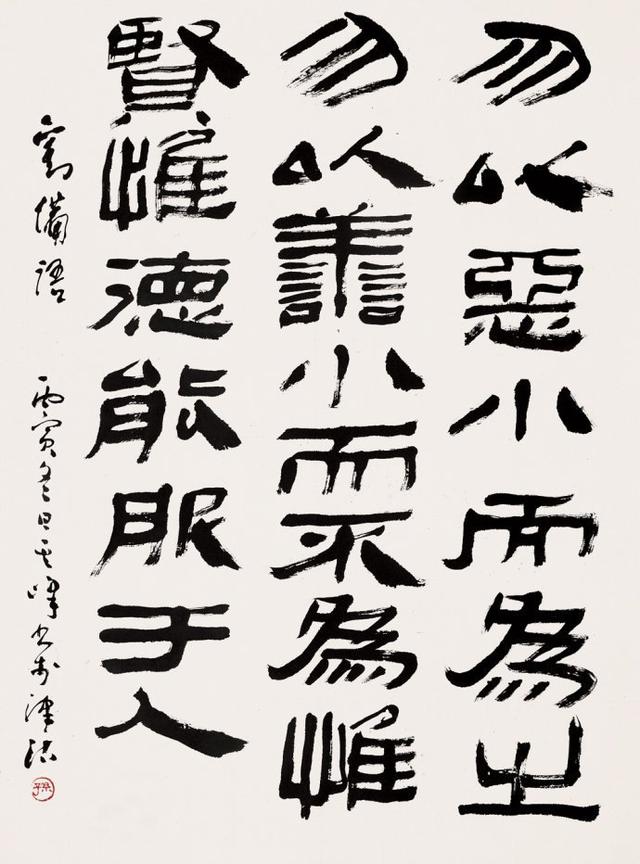 勿以惡小而為之
勿以善小而不為惟
賢惟德能服于人
劉備語 丙寅冬日其峰書於津沽
孫